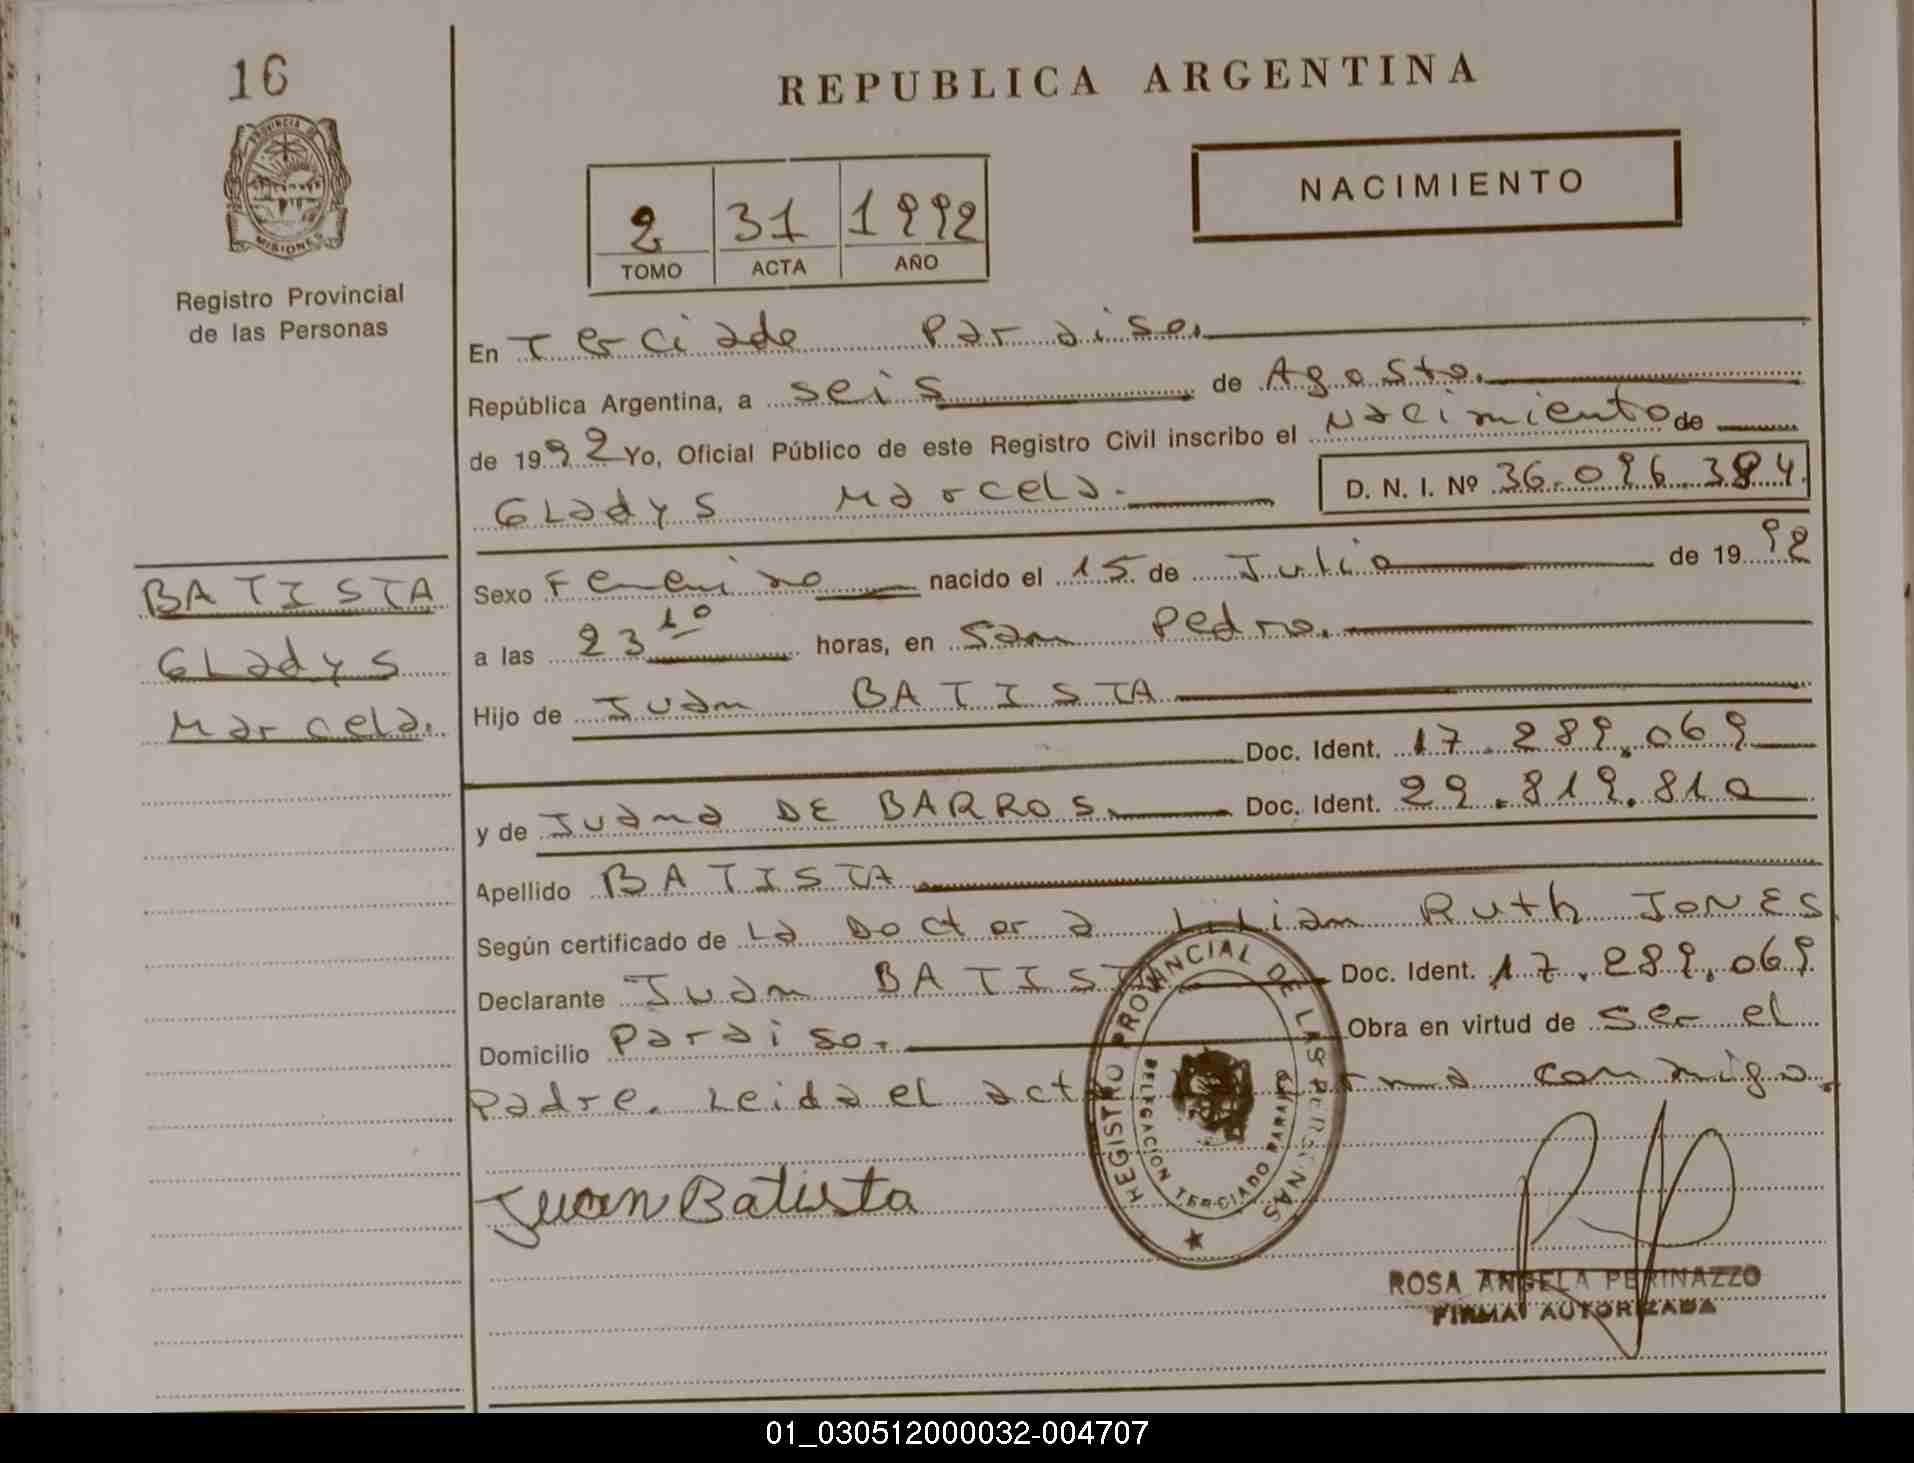 16
REPUBLICA ARGENTINA
PROVINCIA DE
MISIONES
NACIMIENTO
2 31 1992
TOMO ACTA AÑO
Registro Provincial
de las Personas
En Terciado Paraiso.
República Argentina, a seis de Agosto.
de 1992 Yo, Oficial Público de este Registro Civil inscribo el Nacimiento de
Gladys Marcela. D. N. I. Nº 36.096.384
BATISTA
Gladys
Marcela.
Sexo Femenino nacido el 15 de Julio de 1992
a las 23 10 horas, en San Pedro.
Hijo de Juan BATISTA
Doc. Ident. 17.289.069
y de Juana DE BARROS. Doc. Ident. 29.819.810
Apellido BATISTA
Según certificado de La Doctora Lilian Ruth JONES
Declarante Juan BATISTA Doc. Ident. 17.289.069
Domicilio Paraiso. Obra en virtud de ser el
Padre. Leida el acta firma conmigo.
REGISTRO PROVINCIAL DE LAS PERSONAS
DELEGACION TERCIADO PARAISO
Juan Batista
ROSA ANGELA PERINAZZO
FIRMA AUTORIZADA
01_030512000032-004707